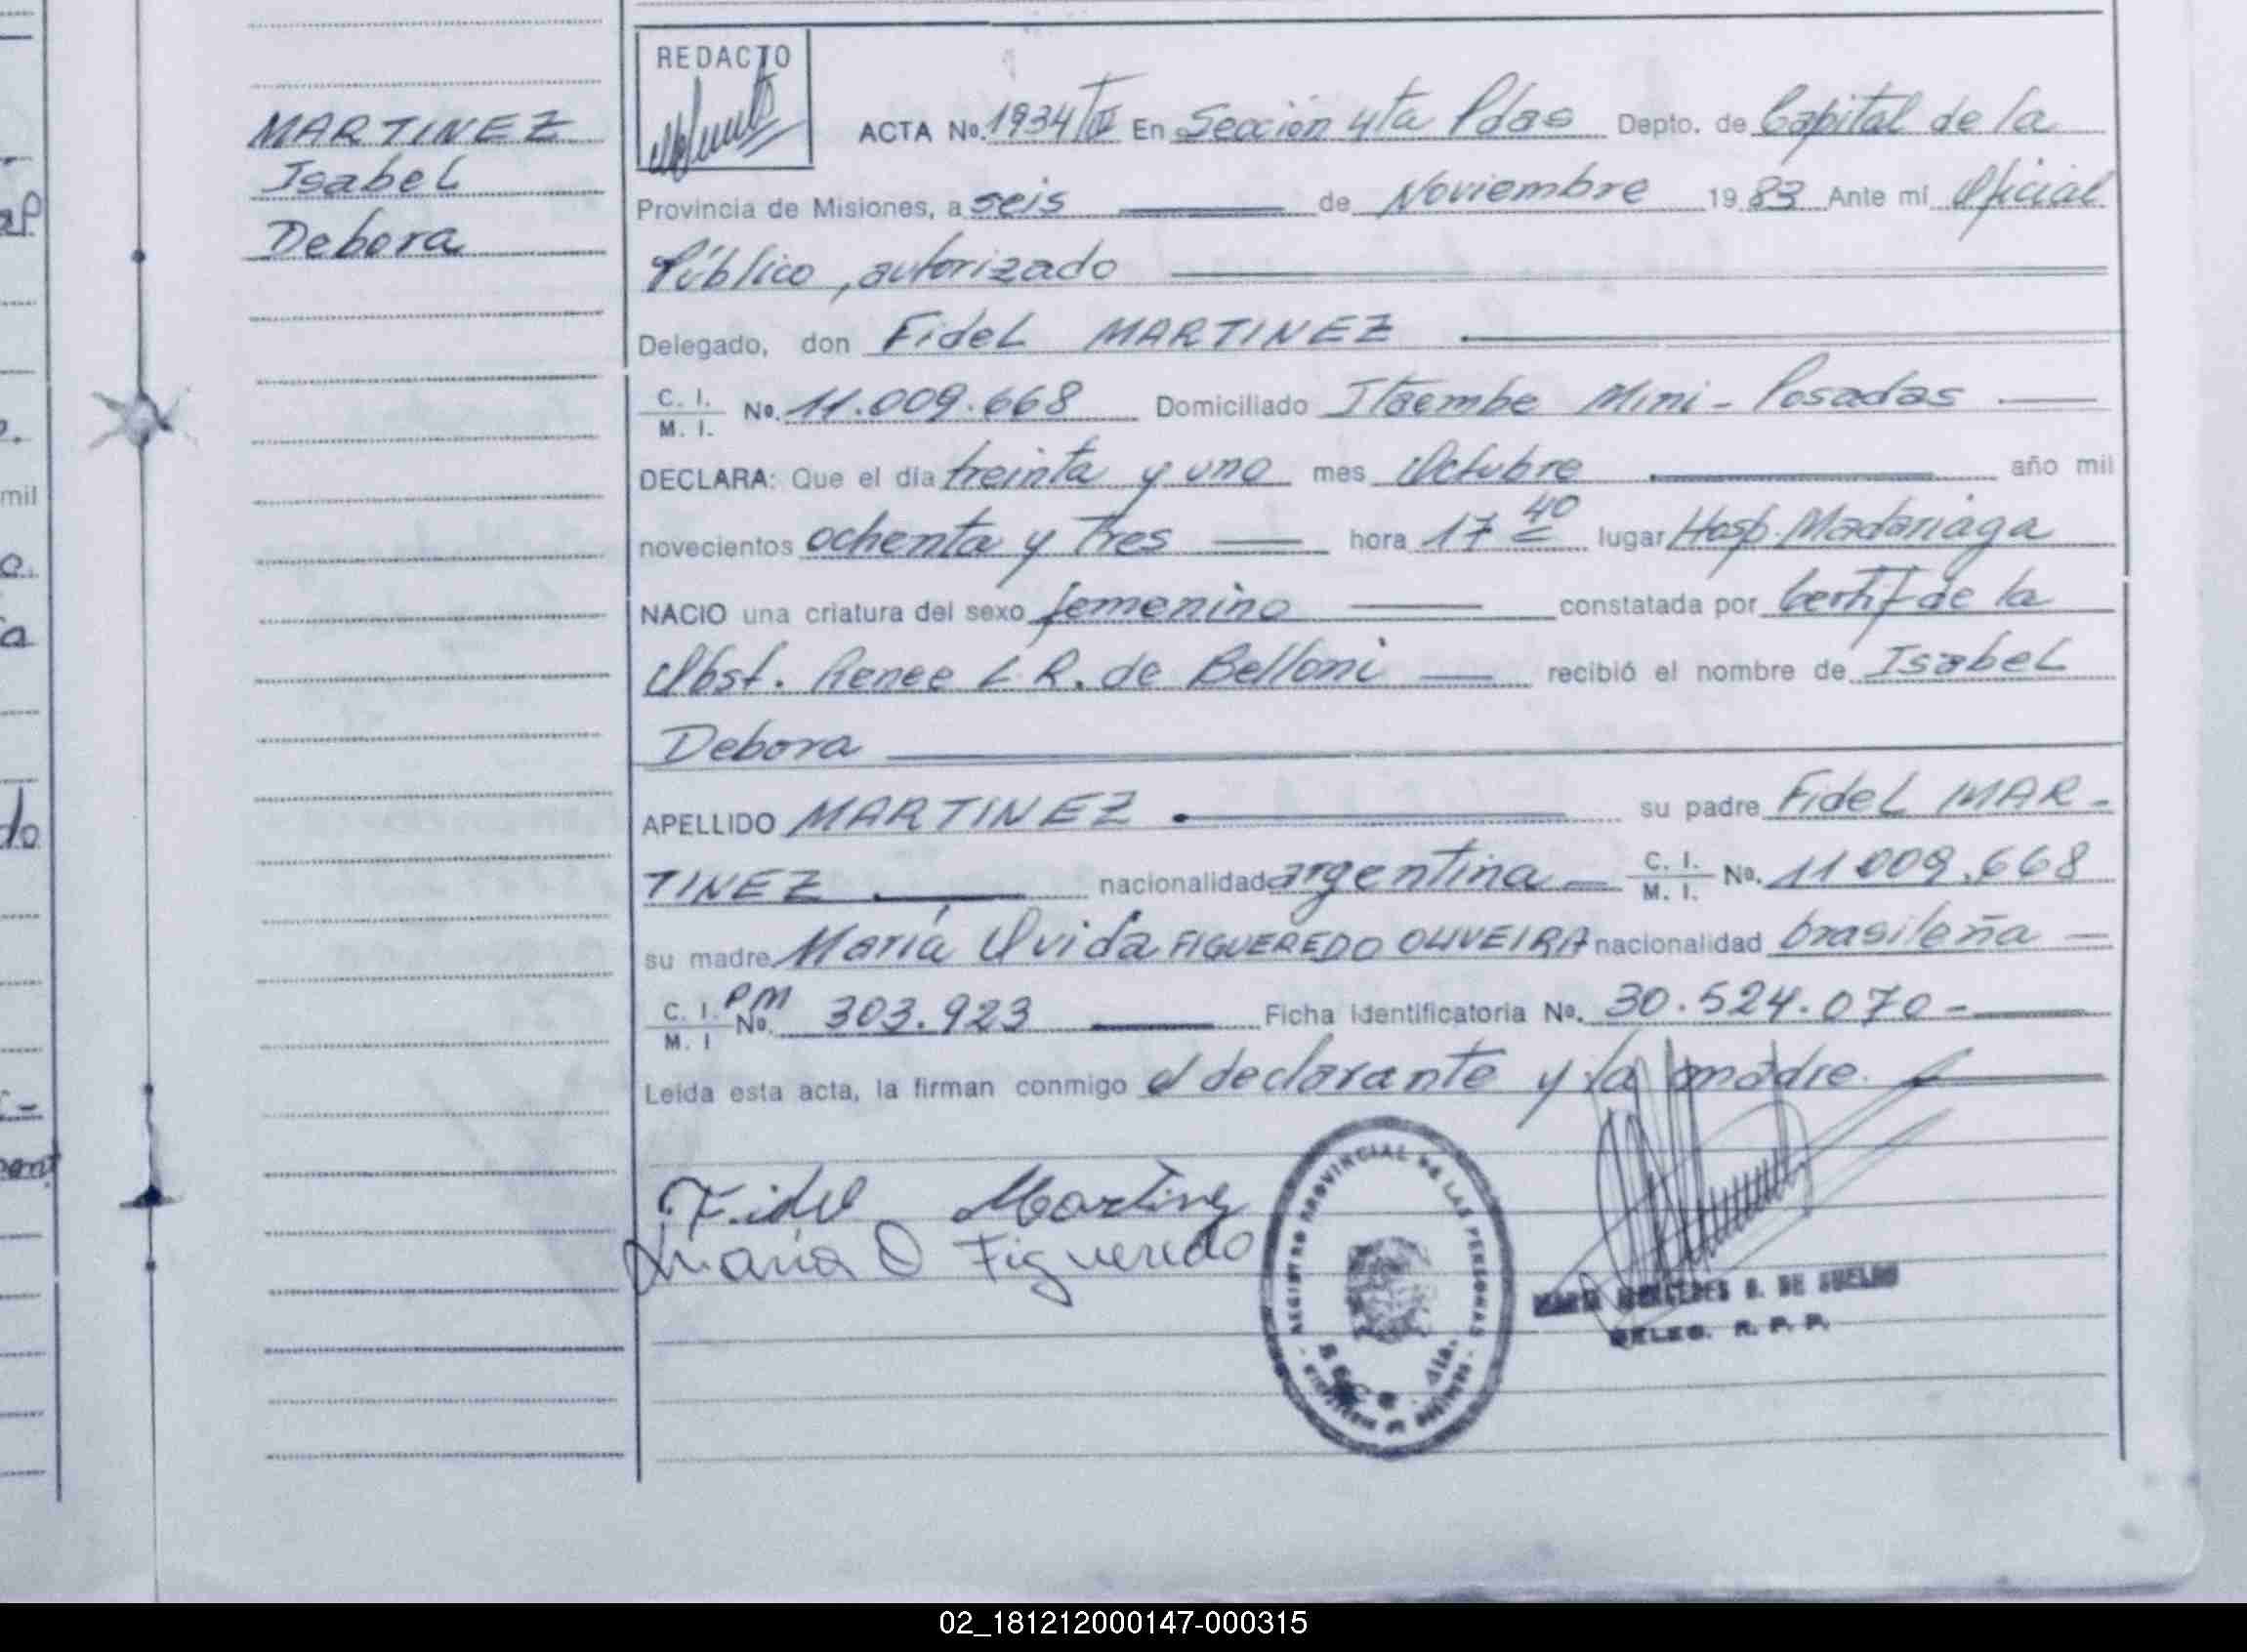 MARTINEZ
Isabel
Debora
REDACTO
ACTA No. 1934/II En Sección 4ta Pdas Depto. de Capital de la
Provincia de Misiones, a seis de Noviembre 1983 Ante mí Oficial
Público, autorizado
Delegado, don Fidel MARTINEZ
C. I. M. I. No. 11.009.668 Domiciliado Itaembe Mini - Posadas
DECLARA: Que el día treinta y uno mes Octubre año mil
novecientos ochenta y Tres hora 17 40 lugar Hosp. Madariaga
NACIO una criatura del sexo femenino constatada por Certif de la
Obst. Renee L. R. de Belloni recibió el nombre de Isabel
Debora
APELLIDO MARTINEZ su padre Fidel MAR-
TINEZ nacionalidad argentina C. I. M. I. No. 11.009.668
su madre María Ovida FIGUEREDO OLIVEIRA nacionalidad brasileña
C. I. M. I PM No. 303.923 Ficha Identificatoria No. 30.524.070-
Leída esta acta, la firman conmigo el declarante y la madre.
Fidel Martinez
María O Figueredo
REGISTRO PROVINCIAL DE LAS PERSONAS
DELEG. R. P. P.
02_181212000147-000315